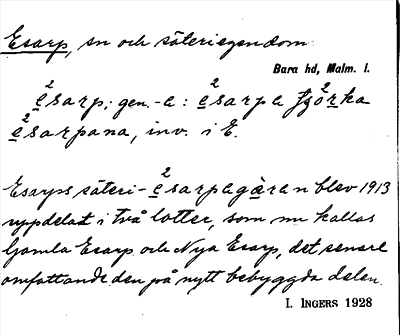 Esarp, sn och säteriegendom
Bara hd, Malm. l.
2 2 2
esarp; gen. -a : esarpa ſjörka
2
esarpana, inv. i E.
2
Esarps säteri- esarpagåren blev 1913
uppdelat i två lotter, som nu kallas
Gamla Esarp och Nya Esarp, det senare
omfattande den på nytt bebyggda delen.
I. INGERS 1928